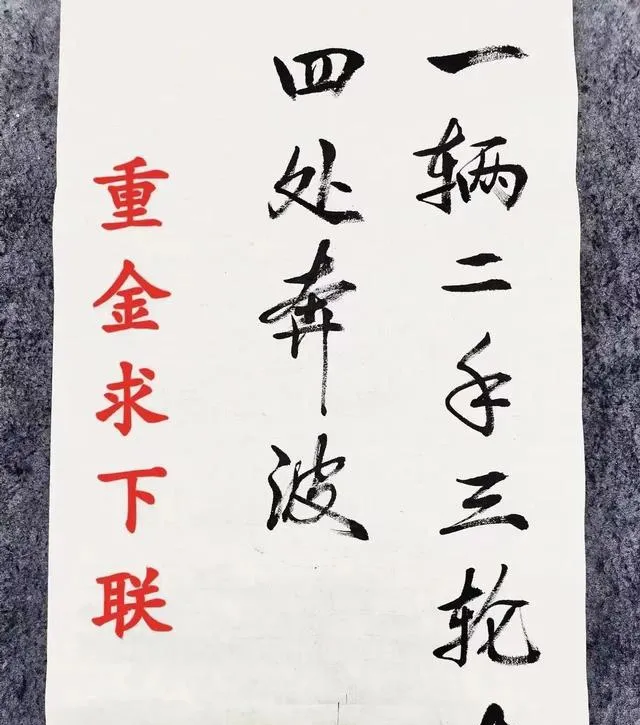 一辆二手三轮
四处奔波
重金求下联